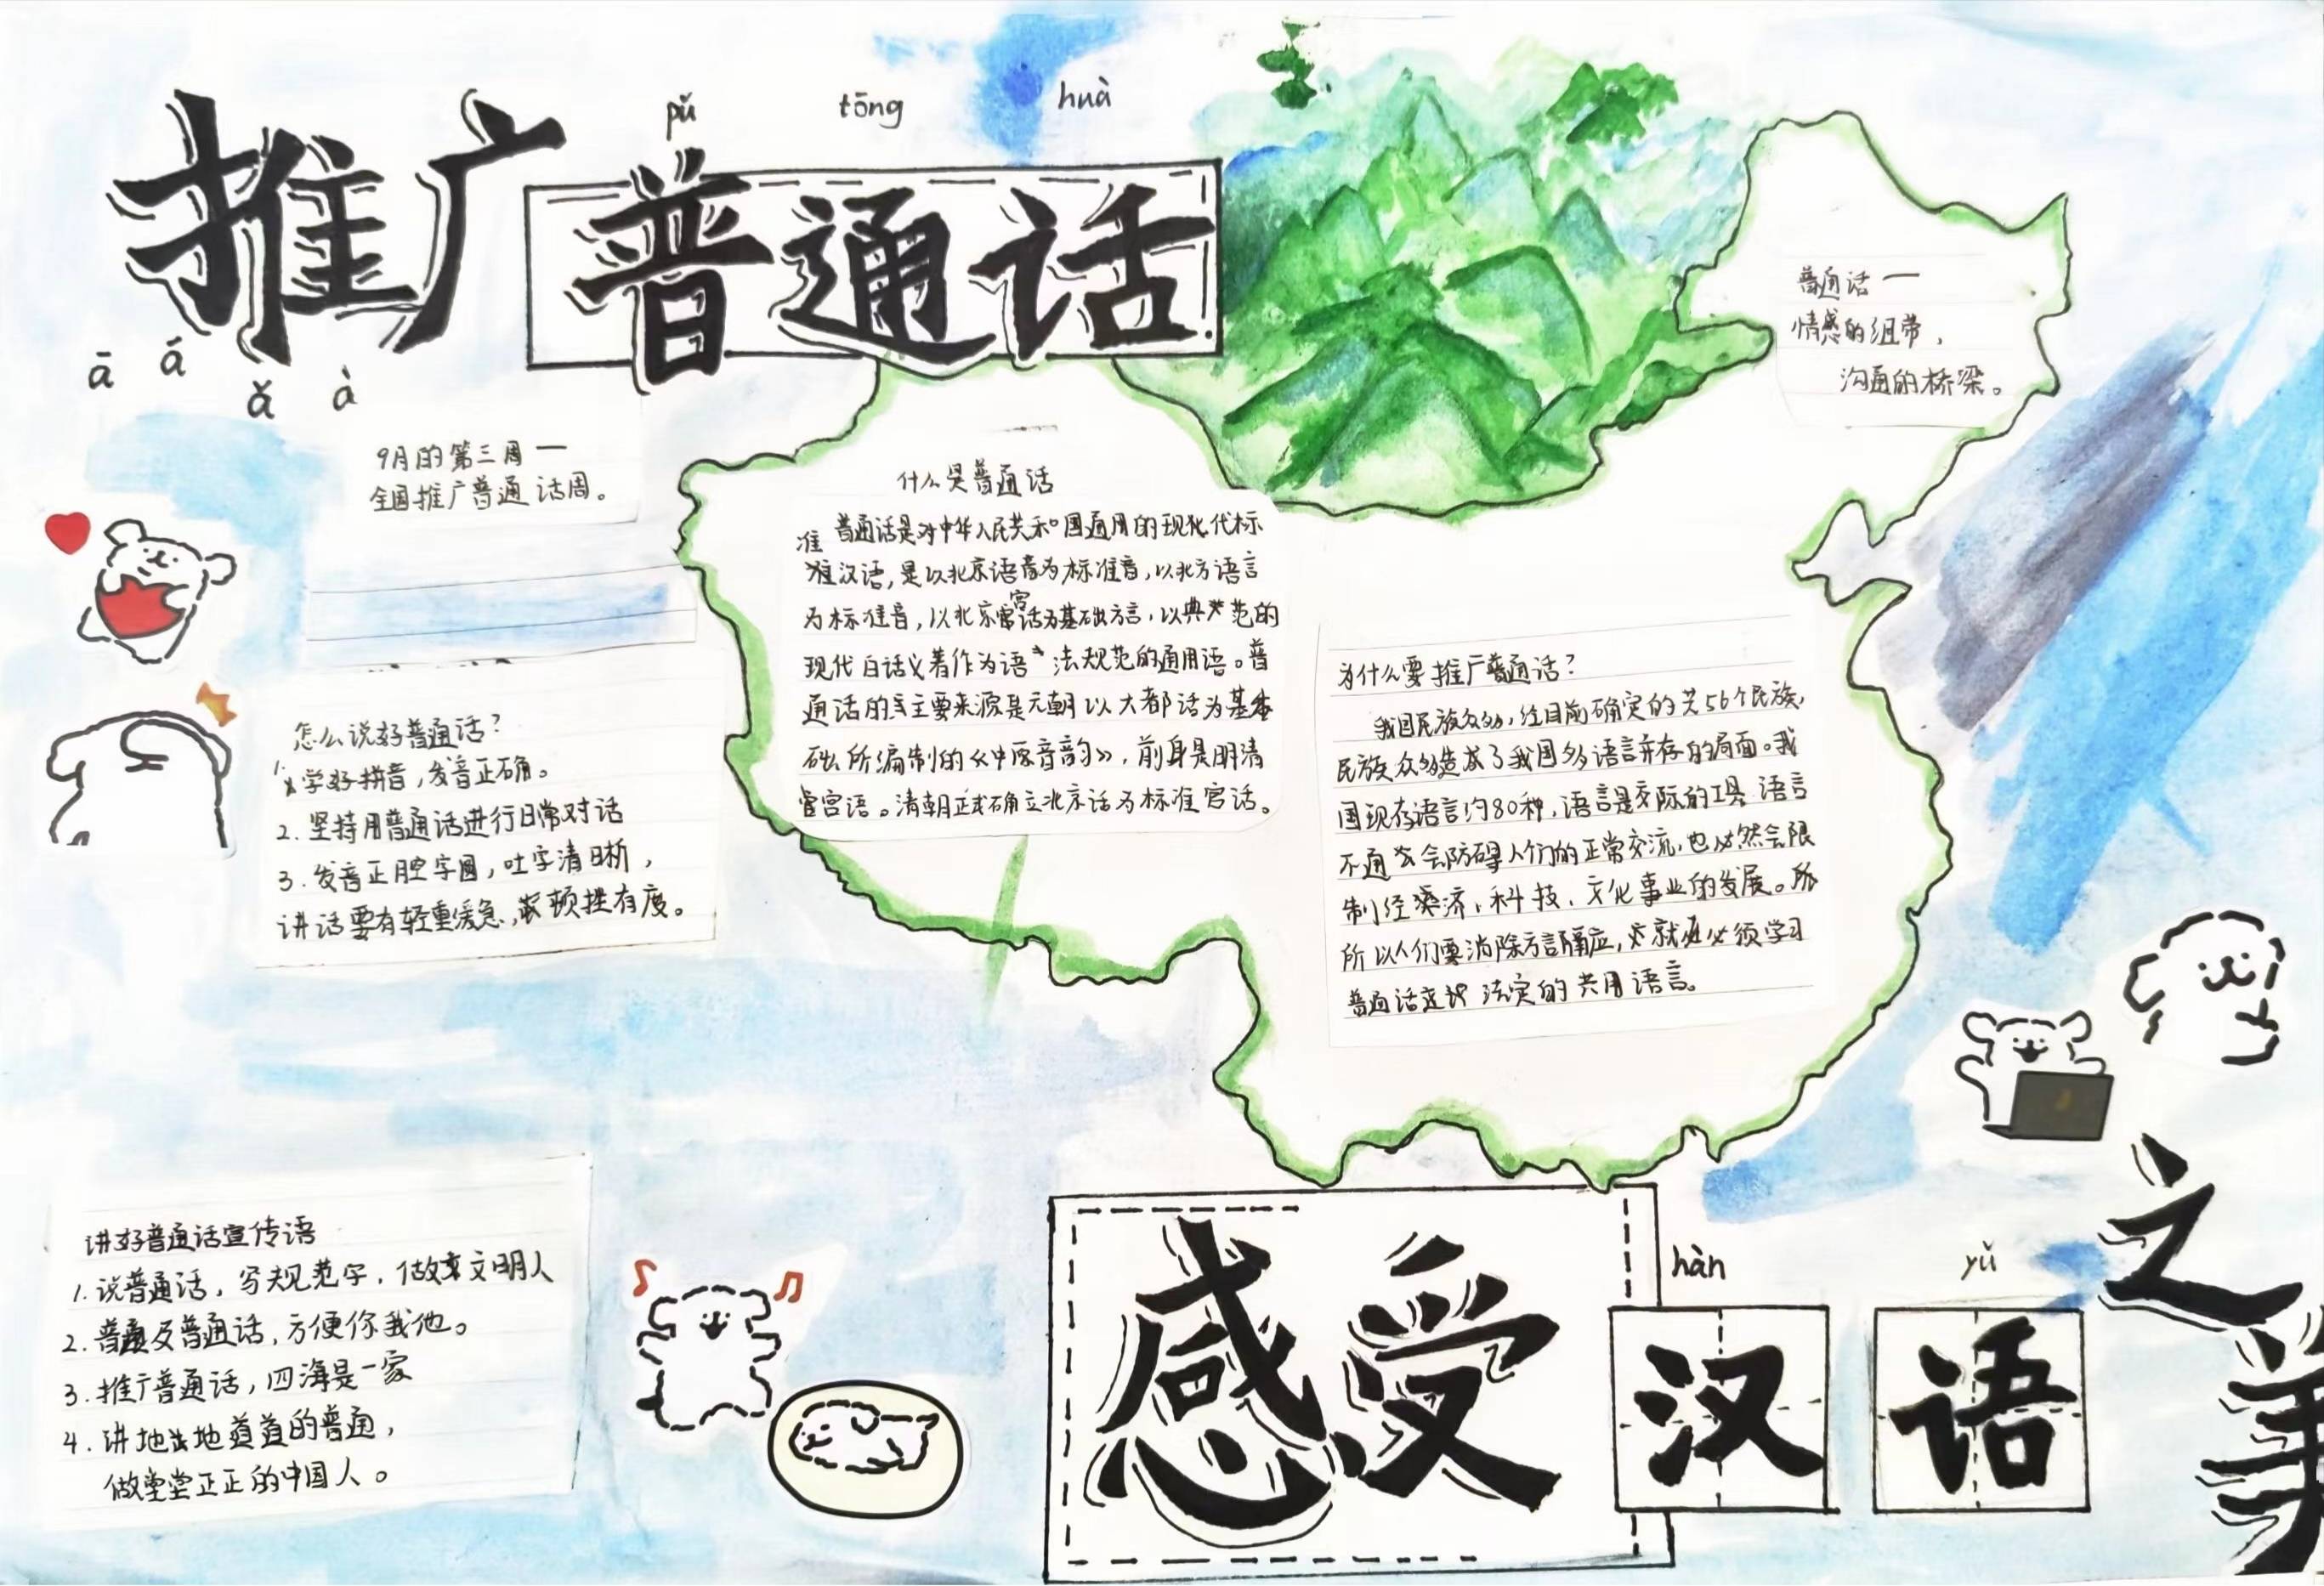 pǔ tōng huà
推广普通话
ā á ǎ à
9月的第三周一
全国推广普通话周。
普通话一
情感的纽带，
沟通的桥梁。
什么是普通话
普通话是中华人民共和国通用的现代标
准汉语，是以北京语音为标准音，以北方语言
为标准音，以北京官话为基础方言，以典范的
现代白话文著作为语法规范的通用语。普
通话的主要来源是元朝以大都话为基
础所编制的《中原音韵》，前身是明清
官语。清朝正式确立北京话为标准官话。
为什么要推广普通话？
我国民族众多，经目前确定的共56个民族，
民族众多造成了我国多语言并存的局面。我
国现存语言约80种，语言是交际的工具 语言
不通会防碍人们的正常交流，也必然会限
制经济、科技、文化事业的发展。所
所以人们要消除方言隔应，就必须学习
普通话 法定的共用语言。
怎么说好普通话？
1.学好拼音，发音正确。
2.坚持用普通话进行日常对话
3.发音正腔字圆，吐字清晰，
讲话要有轻重缓急，顿挫有度。
讲好普通话宣传语
1.说普通话，写规范字，做文明人
2.普及普通话，方便你我他。
3.推广普通话，四海是一家
4.讲地地道道的普通，
做堂堂正正的中国人。
hàn yǔ
感受汉语之美